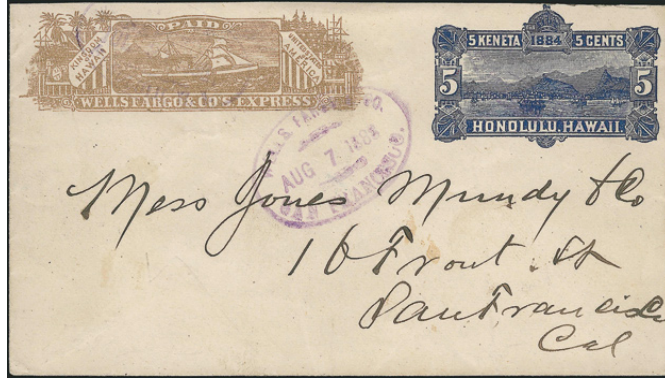 PAID
KINGDOM HAWAII
UNITED STATES AMERICA
WELLS FARGO & CO'S. EXPRESS
5 KENETA 1884 5 CENTS
5 5
HONOLULU, HAWAII.
WELLS FARGO & CO.
AUG 7 1884
SAN FRANCISCO.
Mess Jones Mundy & Co
16 Front. St
San Francisco
Cal